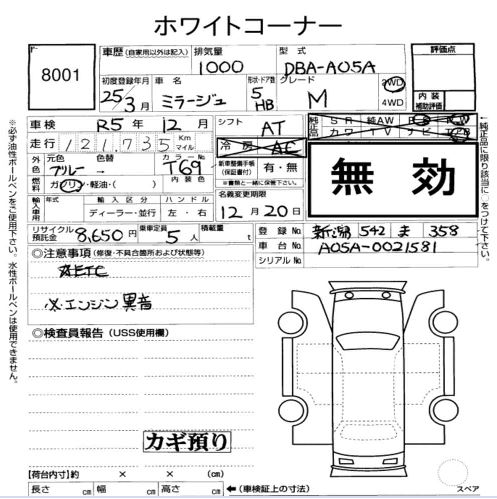 ホワイトコーナー
8001
車歴 (自家用以外は記入) 排気量 型式 評価点
1000 DBA-A05A
初度登録年月 車名 形状・ドア数 グレード
25年3月 ミラージュ 5 HB M 2WD 4WD 内装補助評価
車検 R5年 12月 シフト AT
純正品 SR 純AW PS PW
カワ TV ナビ エアB
走行 121,735 Km マイル 冷房 AC
外色 元色 色替 カラーNo 内装色
ブルー→ T69
新車整備手帳(保証書付) 有・無
※書類と一緒に保管して下さい。
燃料 ガソリン・軽油・( )
名義変更期限
12月20日
輸入車用 年式 輸入区分 ハンドル
ディーラー・並行 左・右
無効
リサイクル預託金 8,650円 乗車定員 5人 積載量 t
登録No 新潟 542 ま 358
車台No A05A-0021581
シリアルNo
◎注意事項 (修復・不具合箇所および状態等)
ETC
※エンジン異音
◎検査員報告 (USS使用欄)
カギ預り
【荷台内寸】約 × × cm
長さ cm 幅 cm 高さ cm ←(車検証上の寸法)
スペア
※必ず油性ボールペンをご使用下さい。水性ボールペンは使用できません。
純正品に限り該当に○をつけて下さい。